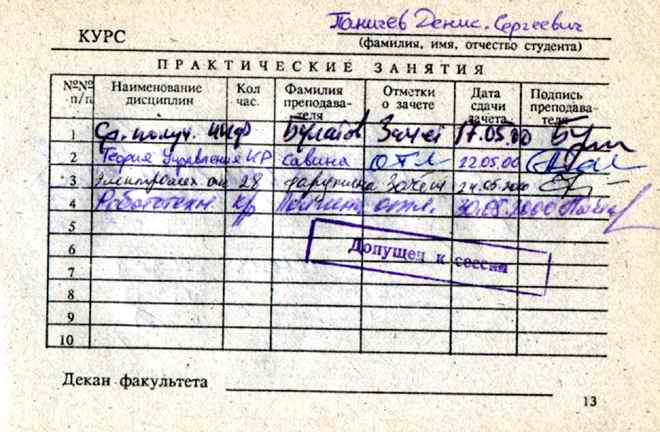 Паничев Денис Сергеевич
КУРС
(фамилия, имя, отчество студента)
ПРАКТИЧЕСКИЕ ЗАНЯТИЯ
№№ п/п Наименование дисциплин Кол час. Фамилия преподава-теля Отметки о зачете Дата сдачи зачета Подпись преподава-теля
1 Ср. получ. инф Булатов Зачет 17.05.00
2 Теория управления КР Савина отл 22.05.00
3 28 Зачет
4 Робототехн. кр отл. 30.05.2000
5
6
7
8
9
10
Допущен к сессии
Декан факультета
13